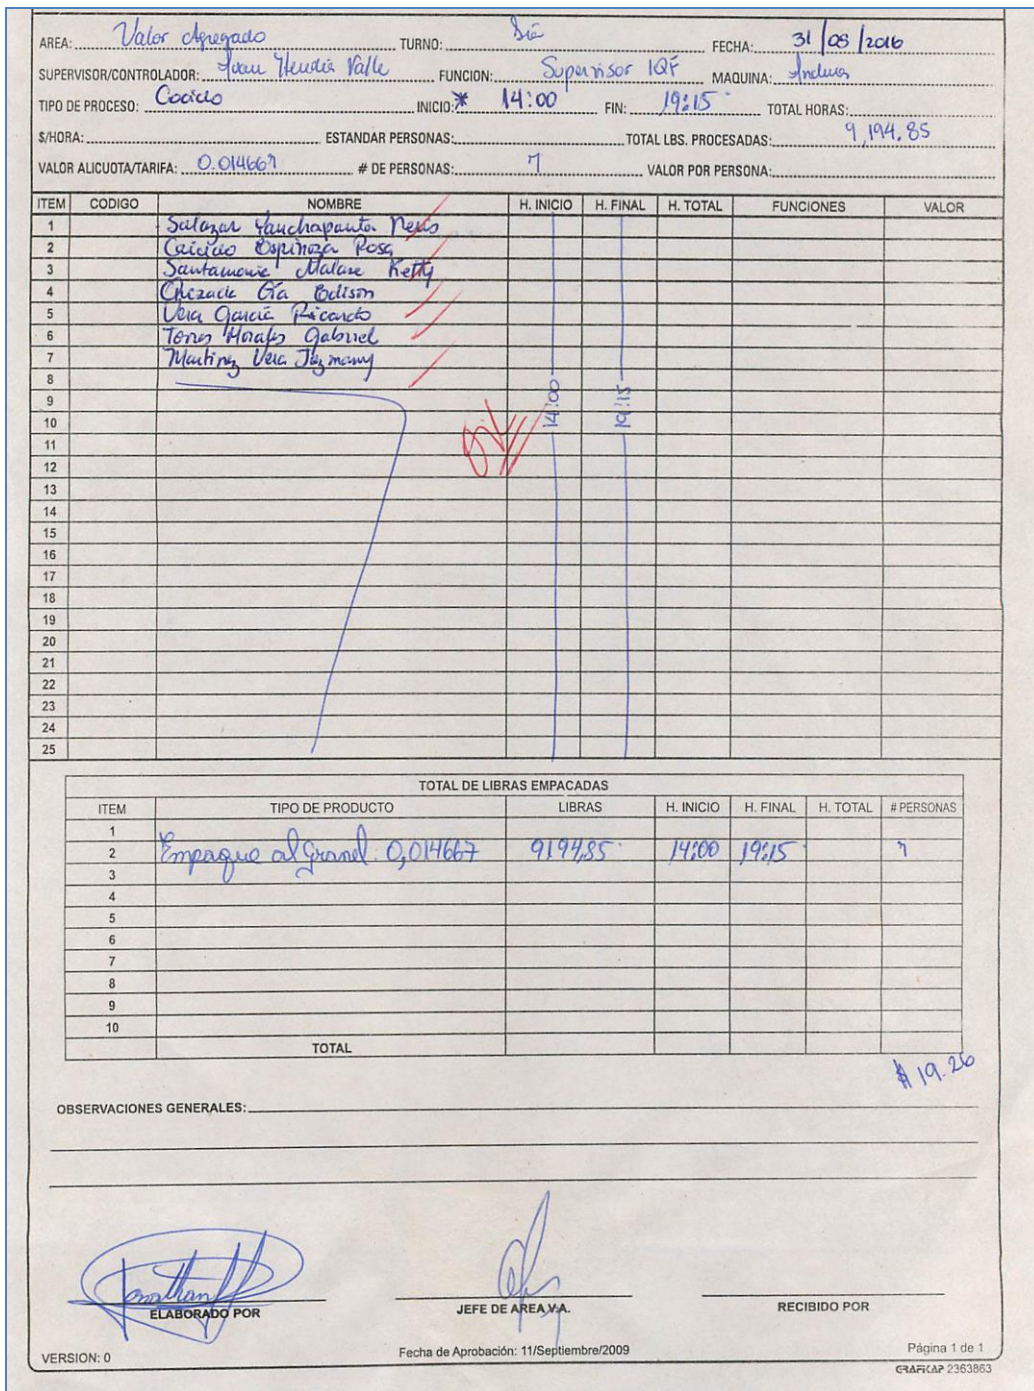 AREA: Valor Agregado TURNO: Día FECHA: 31/08/2016
SUPERVISOR/CONTROLADOR: Valle FUNCION: Supervisor IQF MAQUINA:
TIPO DE PROCESO: Cocido INICIO:* 14:00 FIN: 19:15 TOTAL HORAS:
$/HORA: ESTANDAR PERSONAS: TOTAL LBS. PROCESADAS: 9,194.85
VALOR ALICUOTA/TARIFA: 0.014667 # DE PERSONAS: 7 VALOR POR PERSONA:
ITEM CODIGO NOMBRE H. INICIO H. FINAL H. TOTAL FUNCIONES VALOR
1 Salazar
2 Caicido Espinoza Rosa
3 Santamaria Malave Ketty
4 Edison
5 Vera García Ricardo
6 Torres Morales Gabriel
7 Martinez Vera
8
9
10 14:00 19:15
11
12
13
14
15
16
17
18
19
20
21
22
23
24
25
TOTAL DE LIBRAS EMPACADAS
ITEM TIPO DE PRODUCTO LIBRAS H. INICIO H. FINAL H. TOTAL # PERSONAS
1
2 Empaque al Granel. 0,014667 9194,85 14:00 19:15 7
3
4
5
6
7
8
9
10
TOTAL
$ 19.26
OBSERVACIONES GENERALES:
Jonathan
ELABORADO POR JEFE DE AREA V.A. RECIBIDO POR
VERSION: 0 Fecha de Aprobación: 11/Septiembre/2009 Página 1 de 1
GRAFICAP 2363863